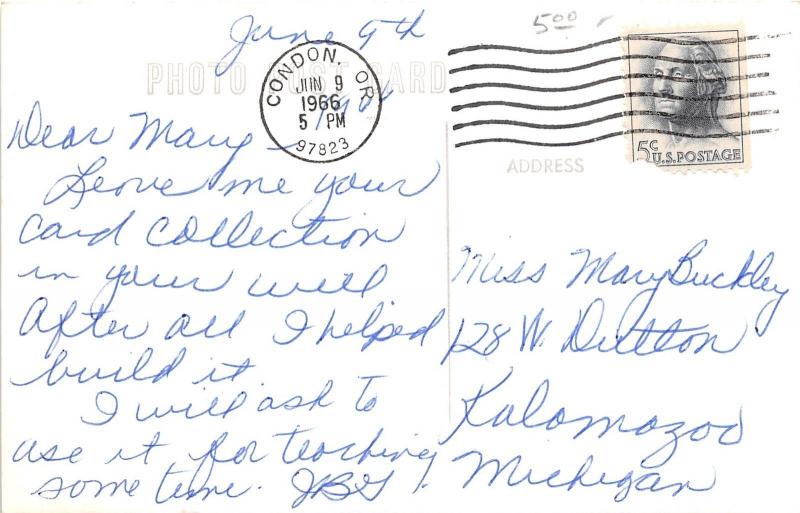 June 9th
5.00
PHOTO POST CARD
CONDON, OR
JUN 9
1966
5 PM
97823
5c
U.S. POSTAGE
Dear Mary -
Leave me your
card collection
in your will
After all I helped
build it.
I will ask to
use it for teaching
some time. JBG
ADDRESS
Miss Mary Buckley
128 W. Dutton
Kalamazoo
Michigan